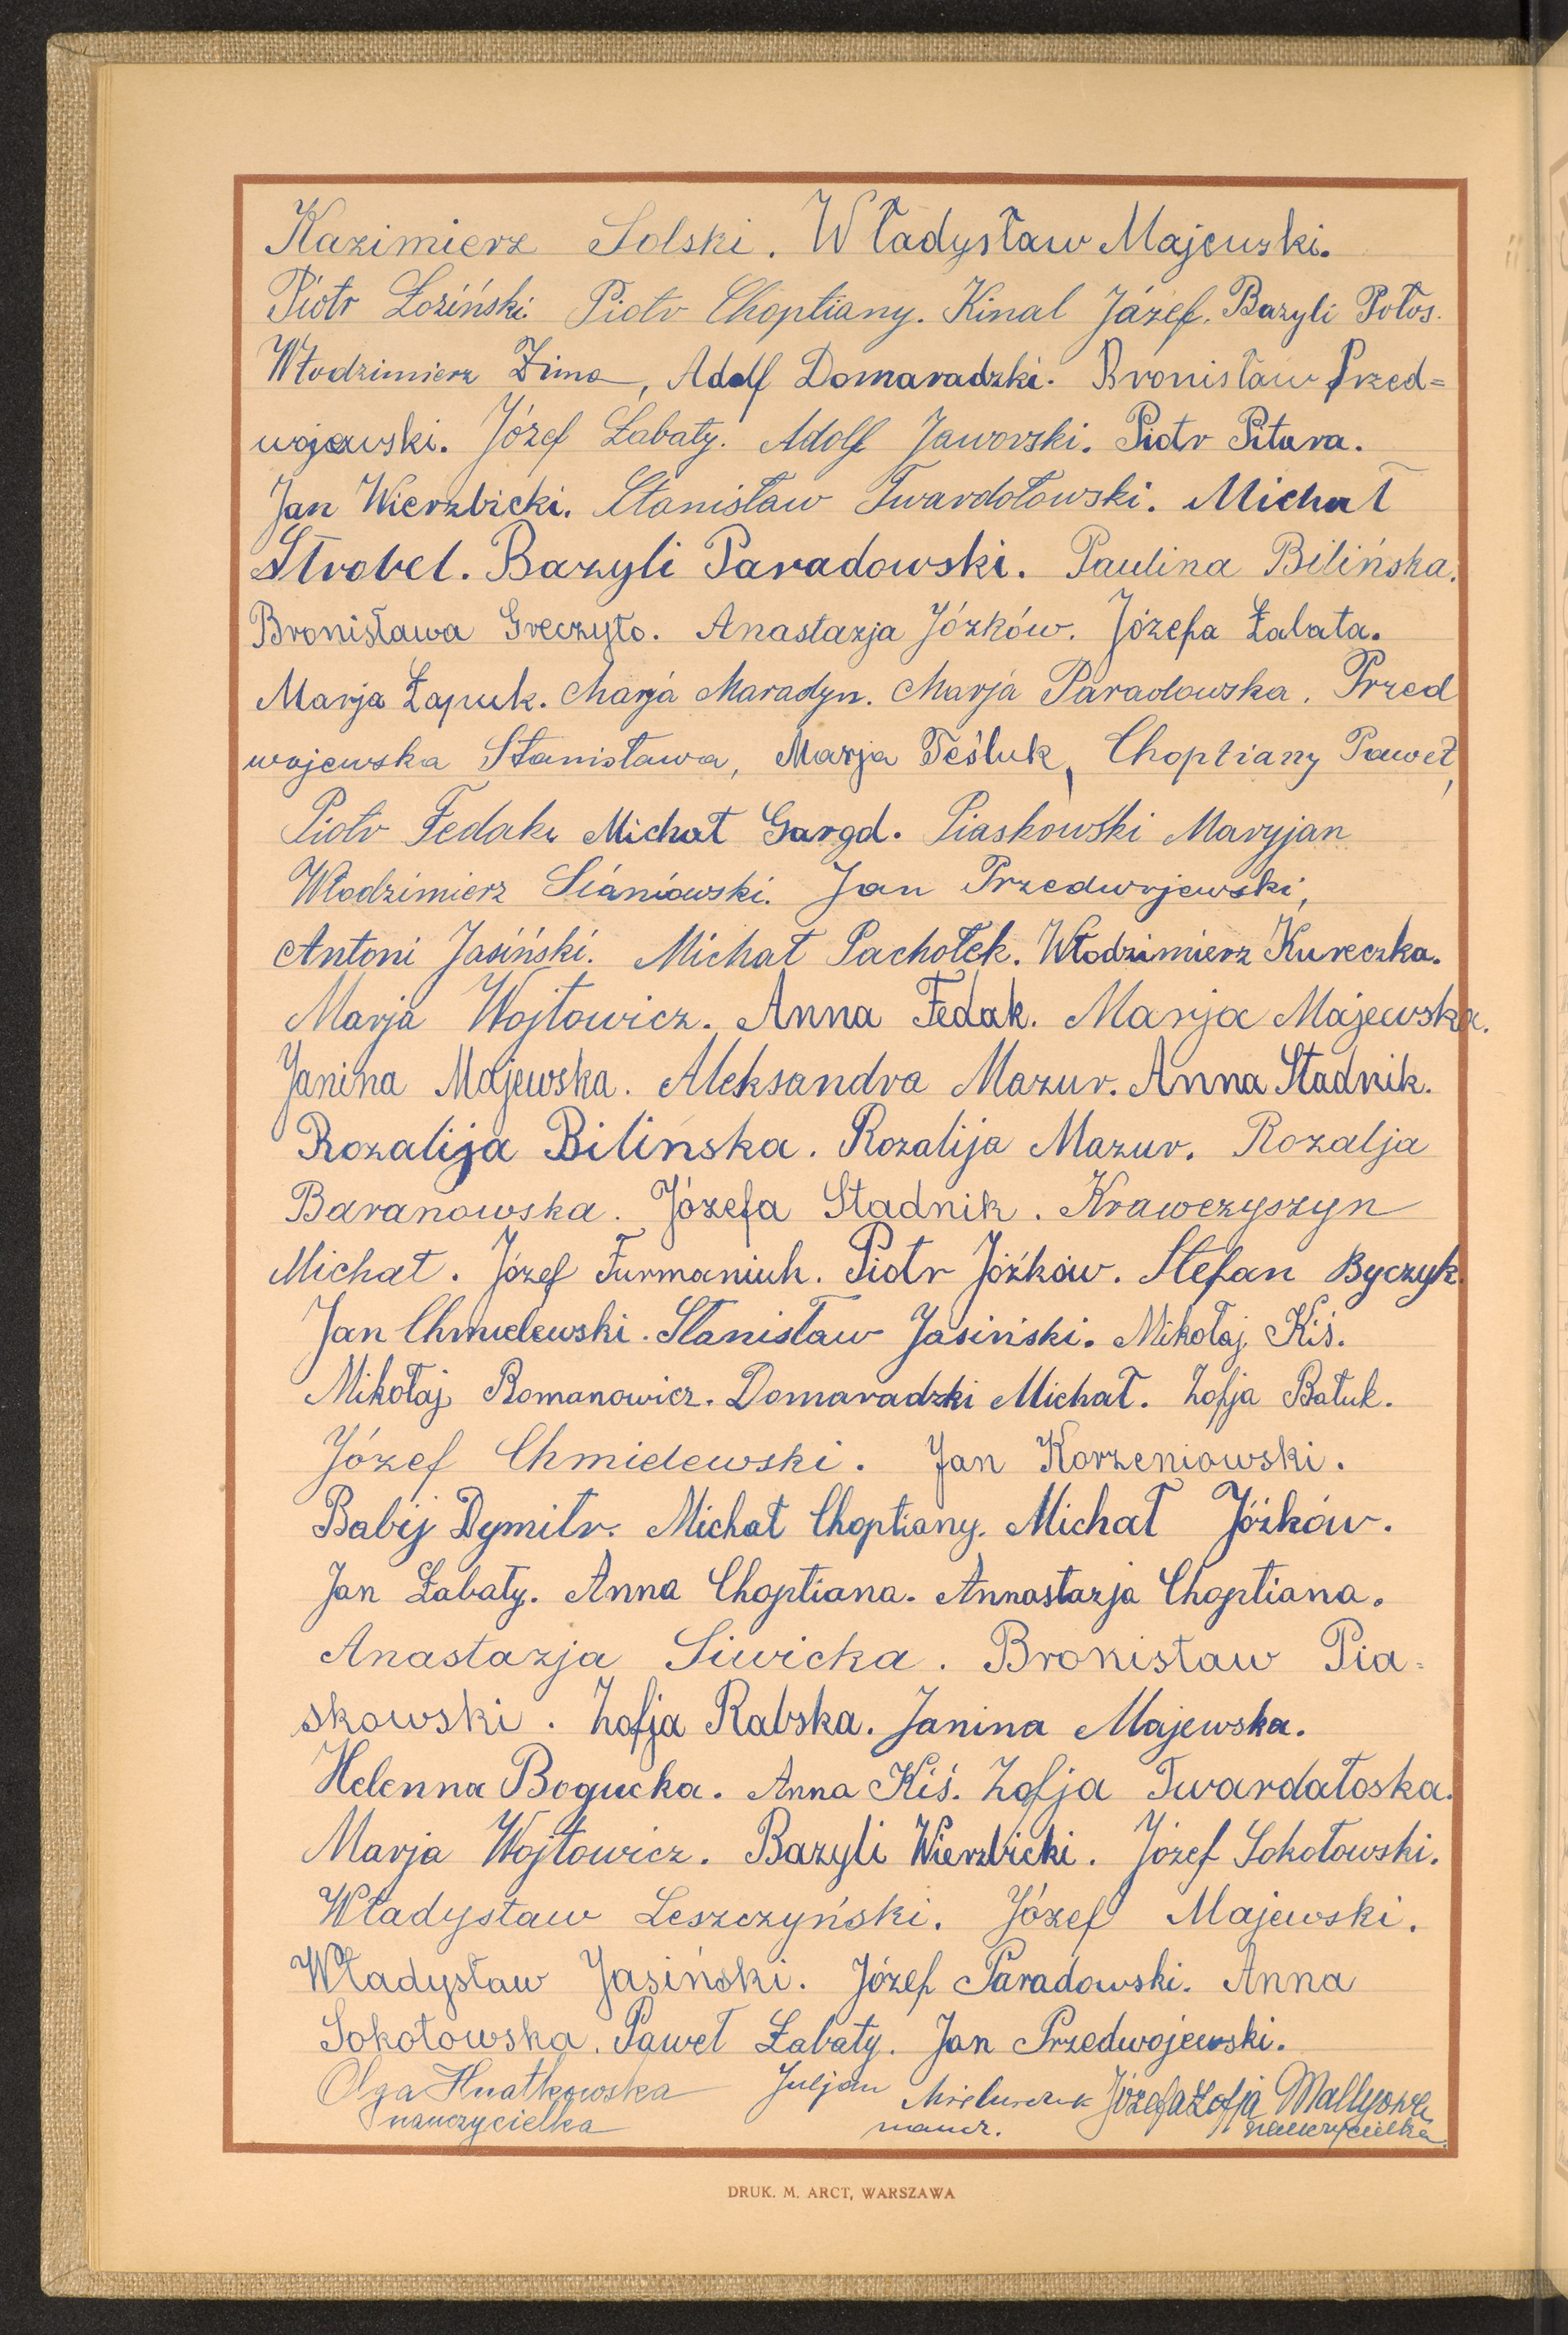 Kazimierz Solski. Władysław Majewski.
Piotr Łoziński. Piotr Choptiany. Kinal Józef. Bazyli Połos.
Włodzimierz Zima, Adolf Domaradzki. Bronisław Przed=
wojewski. Józef Łabaty. Adolf Jaworski. Piotr Pitura.
Jan Wierzbicki. Stanisław Twardołowski. Michał
Strobel. Bazyli Paradowski. Paulina Bilińska.
Bronisława Greczyło. Anastazja Józków. Józefa Łabata.
Marja Łapuk. Marja Maradyn. Marja Paradowska. Przed
wojewska Stanisława, Marja Teśluk, Choptiany Paweł,
Piotr Fedak. Michał Gargd. Piaskowski Maryjan
Włodzimierz Sianiawski. Jan Przedwojewski,
Antoni Jasiński. Michał Pachołek. Włodzimierz Kureczka.
Marja Wojtowicz. Anna Fedak. Marja Majewska.
Janina Majewska. Aleksandra Mazur. Anna Stadnik.
Rozalija Bilińska. Rozalija Mazur. Rozalja
Baranowska. Józefa Stadnik. Krawczyszyn
Michał. Józef Furmaniuk. Piotr Józków. Stefan Byczyk.
Jan Chmielewski. Stanisław Jasiński. Mikołaj Kiś.
Mikołaj Romanowicz. Domaradzki Michał. Zofja Bałuk.
Józef Chmielewski. Jan Korzeniowski.
Babij Dymitr. Michał Choptiany. Michał Józków.
Jan Łabaty. Anna Choptiana. Annastazja Choptiana.
Anastazja Siwicka. Bronisław Pia-
skowski. Zofja Rabska. Janina Majewska.
Helenna Bogucka. Anna Kiś. Zofja Twardałoska.
Marja Wojtowicz. Bazyli Wierzbicki. Józef Sokołowski.
Władysław Leszczyński. Józef Majewski.
Władysław Jasiński. Józef Paradowski. Anna
Sokołowska. Paweł Łabaty. Jan Przedwojewski.
Olga Hnatkowska Juljan Józefa Zofja
nauczycielka naucz. nauczycielka.
DRUK. M. ARCT, WARSZAWA